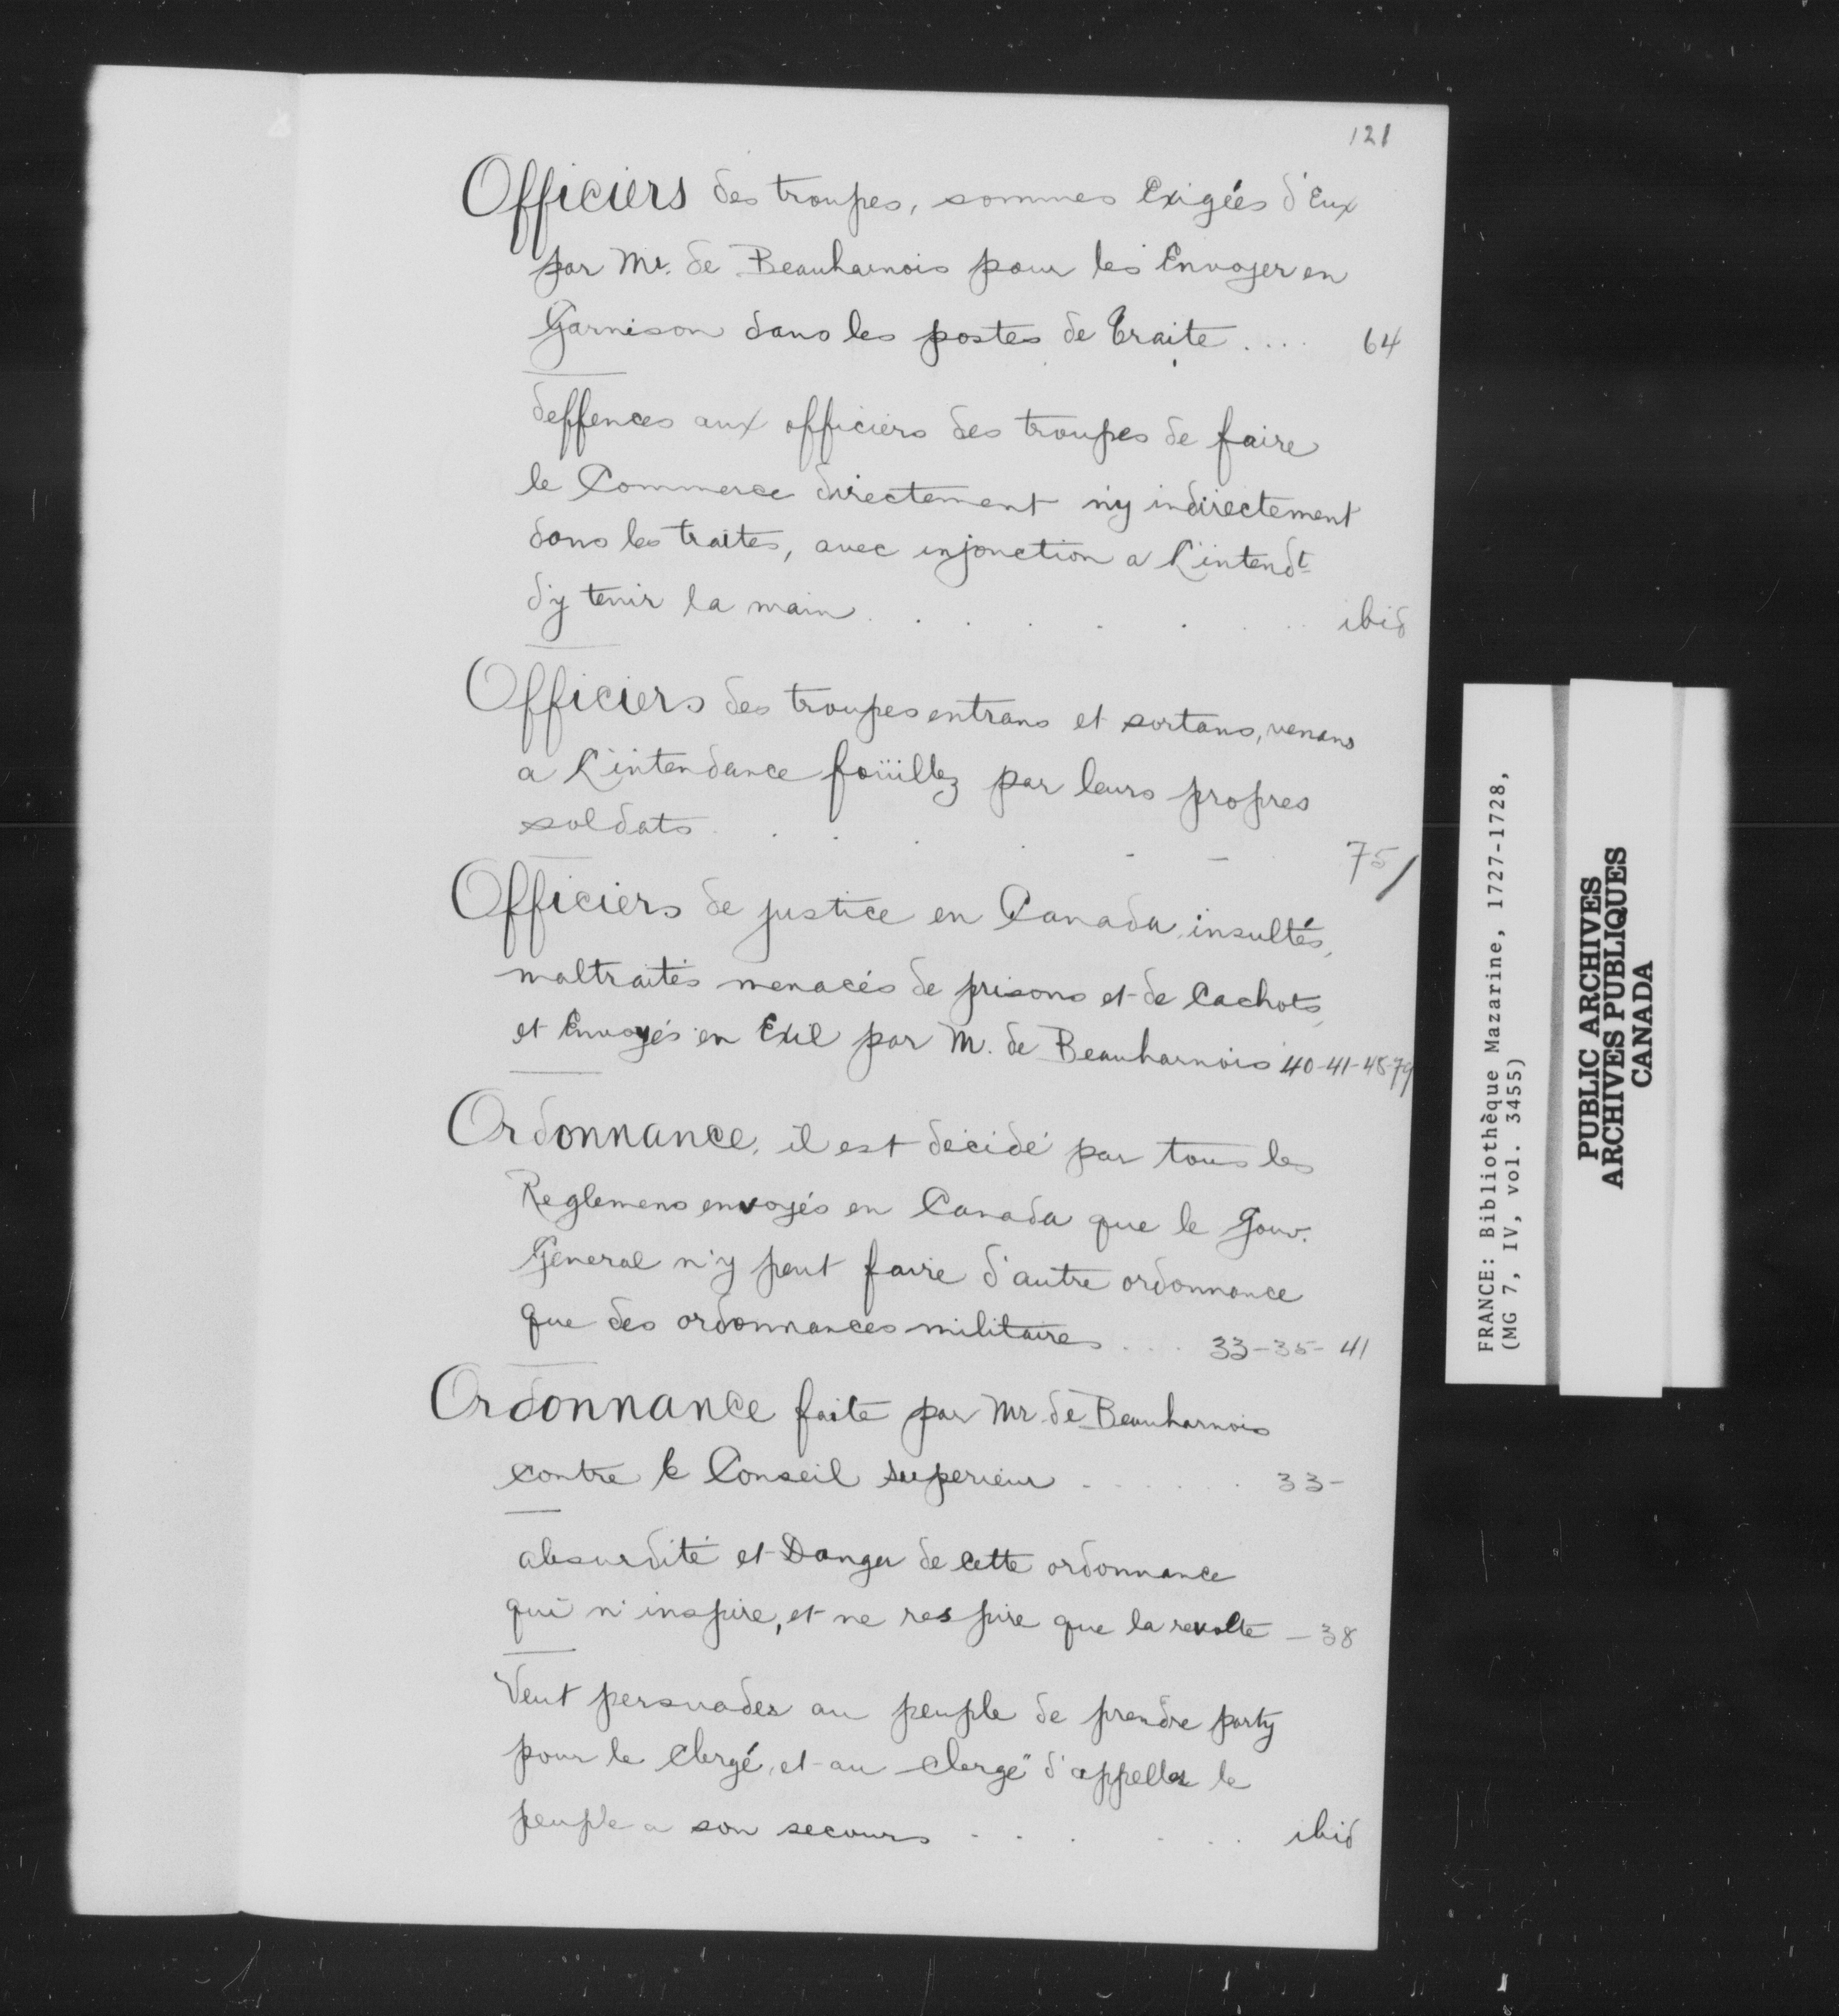 121
Officiers des troupes, sommes Exigées d'Eux
par Mr. de Beauharnois pour les Envoyer en
Garnison dans les postes de traite .... 64
deffences aux officiers des troupes de faire
le Commerce directement n'y indirectement
dans les traites, avec injonction a L'intendt
d'y tenir la main . . . . . . . ibid
Officiers des troupes entrans et sortans, venans
a L'intendance foüillez par leurs propres
soldats . . . . . . 75/
Officiers de justice en Canada, insultés,
maltraités menacés de prisons et de Cachots,
et Envoyés en Exil par M. de Beauharnois 40-41-48-79
Ordonnance, il est décidé par tous les
Reglemens envoyés en Canada que le Gouv.
General n'y peut faire d'autre ordonnance
que des ordonnances militaires . . . 33-35-41
Ordonnance faite par Mr. de Beauharnois
contre le Conseil superieur . . . . . . 33-
absurdité et Danger de Cette ordonnance
qui n'inspire, et ne respire que la revolte - 38
Veut persuader au peuple de prendre party
pour le Clergé, et au Clergé d'appeller le
peuple a son secours . . . . . . ibid
FRANCE: Bibliothèque Mazarine, 1727-1728,
(MG 7, IV, vol. 3455)
PUBLIC ARCHIVES
ARCHIVES PUBLIQUES
CANADA